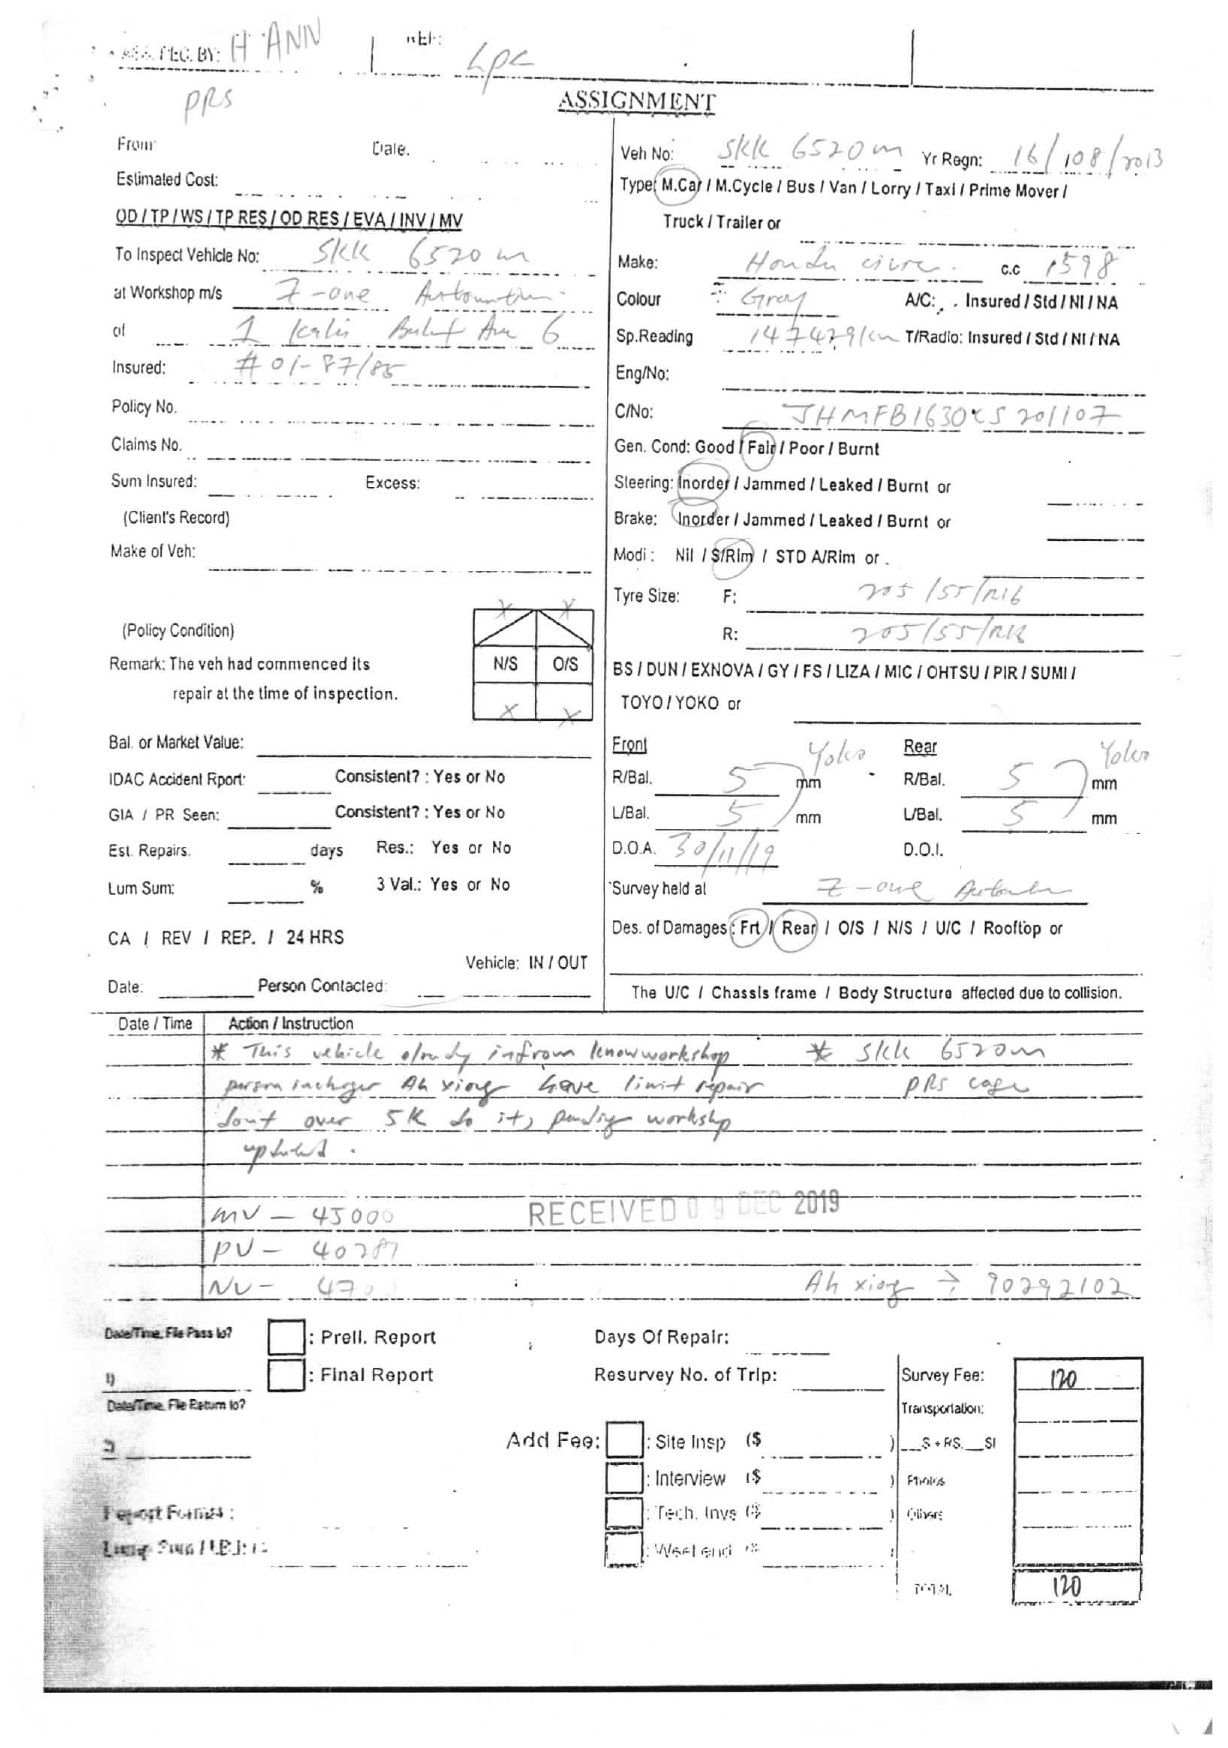 BY: H ANN
REF: Lpc
PRS
ASSIGNMENT
From:
Date.
Estimated Cost:
OD / TP / WS / TP RES / OD RES / EVA / INV / MV
To Inspect Vehicle No: SKK 6520 m
at Workshop m/s Z-one
of 1 Ave 6
Insured: # 01-87/85
Policy No.
Claims No.
Sum Insured: Excess:
(Client's Record)
Make of Veh:
(Policy Condition)
Remark: The veh had commenced its
repair at the time of inspection.
X X
N/S O/S
X X
Bal. or Market Value:
IDAC Accident Rport: Consistent? : Yes or No
GIA / PR Seen: Consistent? : Yes or No
Est. Repairs. days Res.: Yes or No
Lum Sum: % 3 Val.: Yes or No
CA / REV / REP. / 24 HRS
Vehicle: IN / OUT
Date: Person Contacted:
Veh No: SKK 6520m Yr Regn: 16/108/2013
Type: M.Car / M.Cycle / Bus / Van / Lorry / Taxi / Prime Mover /
Truck / Trailer or
Make: Honda civic c.c 1598
Colour : Gray A/C: Insured / Std / NI / NA
Sp.Reading 147429/km T/Radio: Insured / Std / NI / NA
Eng/No:
C/No: JHMFB1630CS201107
Gen. Cond: Good / Fair / Poor / Burnt
Steering: Inorder / Jammed / Leaked / Burnt or
Brake: Inorder / Jammed / Leaked / Burnt or
Modi : Nil / S/Rim / STD A/Rim or .
Tyre Size: F: 205/55/R16
R: 205/55/R16
BS / DUN / EXNOVA / GY / FS / LIZA / MIC / OHTSU / PIR / SUMI /
TOYO / YOKO or
Front Yoko Rear Yoko
R/Bal. 5 mm R/Bal. 5 mm
L/Bal. 5 mm L/Bal. 5 mm
D.O.A. 30/11/19 D.O.I.
Survey held at Z-one
Des. of Damages : Frt / Rear / O/S / N/S / U/C / Rooftop or
The U/C / Chassis frame / Body Structure affected due to collision.
Date / Time Action / Instruction
* This vehicle infrom workshop * SKK 6520m
person Ah xiong limit repair PRS case
dont over 5K do it, workshop
MV - 45000 RECEIVED 09 DEC 2019
PV - 40287
NV - Ah xiong → 90292102
Date/Time, File Pass to?
: Preli. Report Days Of Repair:
1)
: Final Report Resurvey No. of Trip: Survey Fee: 120
Date/Time, File Return to?
Transportation:
2)
Add Fee: : Site Insp ($ ) S + RS SI
: Interview ($ ) Photos
Report Format :
: Tech. Invs ($ ) Others
: Weekend ($
TOTAL 120